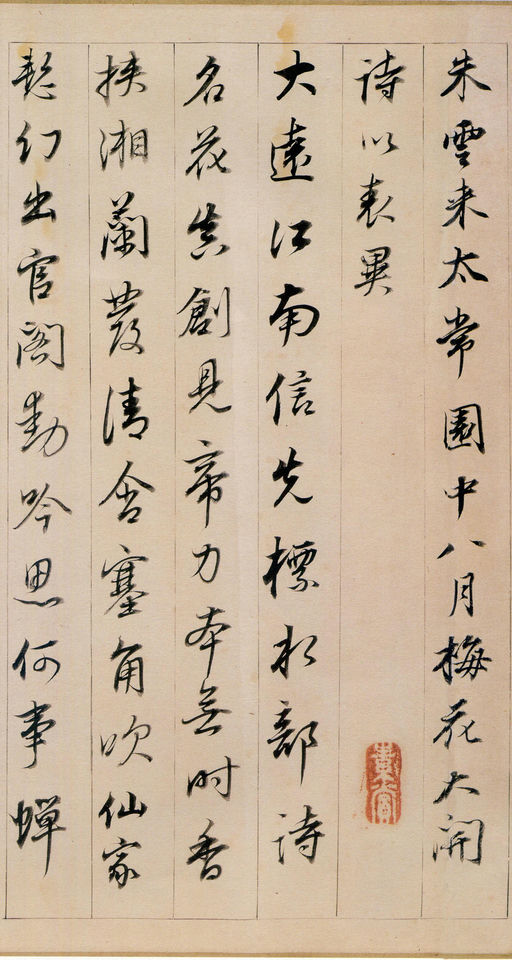 朱雲来太常園中八月梅花大開
詩以表異
大遠江南信先標水部詩
名花真創見帝力本無时香
挾湘蘭發清含塞角吹仙家
幻出官閣動吟思何事蟬